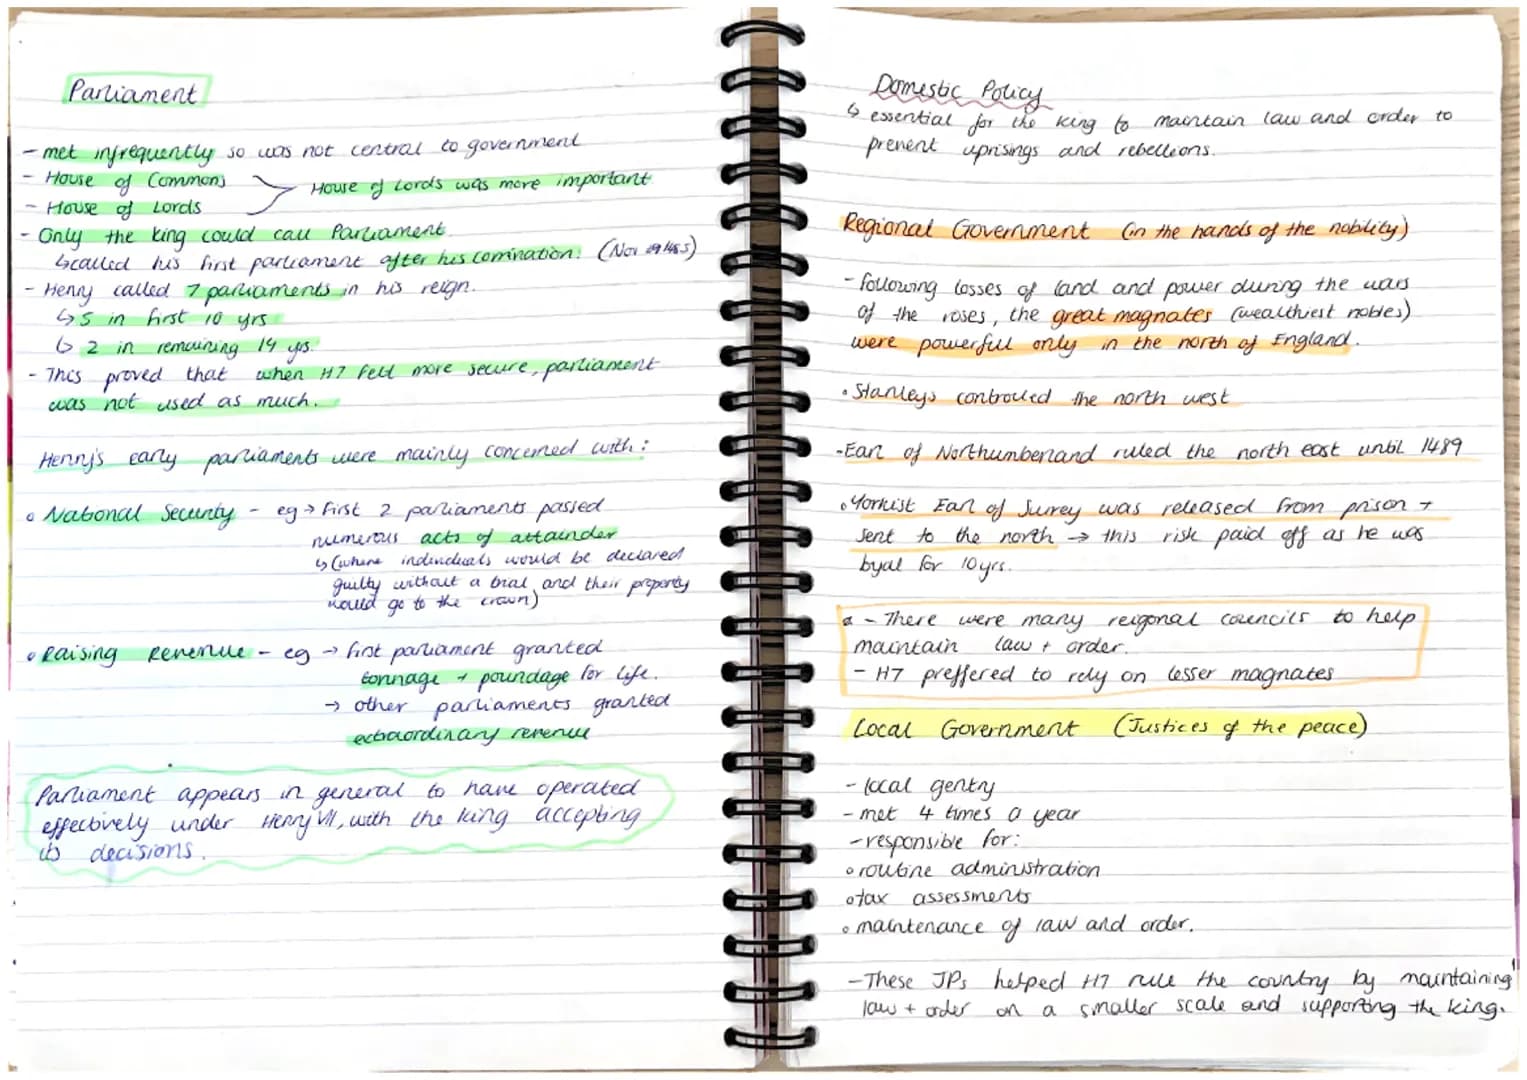 Parliament
- met infrequently so was not central to government
- House of Commons
- House of Lords
House of Lords was more important
- Only the king could call Parliament.
↳called his first parliament after his comination. (Nov 1485)
- Henry called 7 parliaments in his reign.
↳5 in first 10 yrs
↳ 2 in remaining 14 yrs.
- This proved that when H7 felt more secure, parliament
was not used as much.
Henry's early parliaments were mainly concerned with:
• National Security - eg → First 2 parliaments passed
numerous acts of attainder
↳ (where individuals would be declared
guilty without a trial and their property
would go to the crown)
• Raising Revenue - eg → first parliament granted
tonnage + poundage for life.
→ other parliaments granted
extraordinary revenue
Parliament appears in general to have operated
effectively under Henry VII, with the king accepting
its decisions.
Domestic Policy
↳ essential for the king to maintain law and order to
prevent uprisings and rebellions.
Regional Government (in the hands of the nobility)
- following losses of land and power during the wars
of the roses, the great magnates (wealthiest nobles)
were powerful only in the north of England.
• Stanleys controlled the north west
- Earl of Northumberland ruled the north east until 1489
• Yorkist Earl of Surrey was released from prison +
sent to the north → this risk paid off as he was
loyal for 10yrs.
- There were many reigonal councils to help
maintain law + order.
- H7 preffered to rely on lesser magnates
Local Government (Justices of the peace)
- local gentry
- met 4 times a year
- responsible for:
• routine administration
• tax assessments
• maintenance of law and order.
- These JPs helped H7 rule the country by maintaining
law + order on a smaller scale and supporting the king.